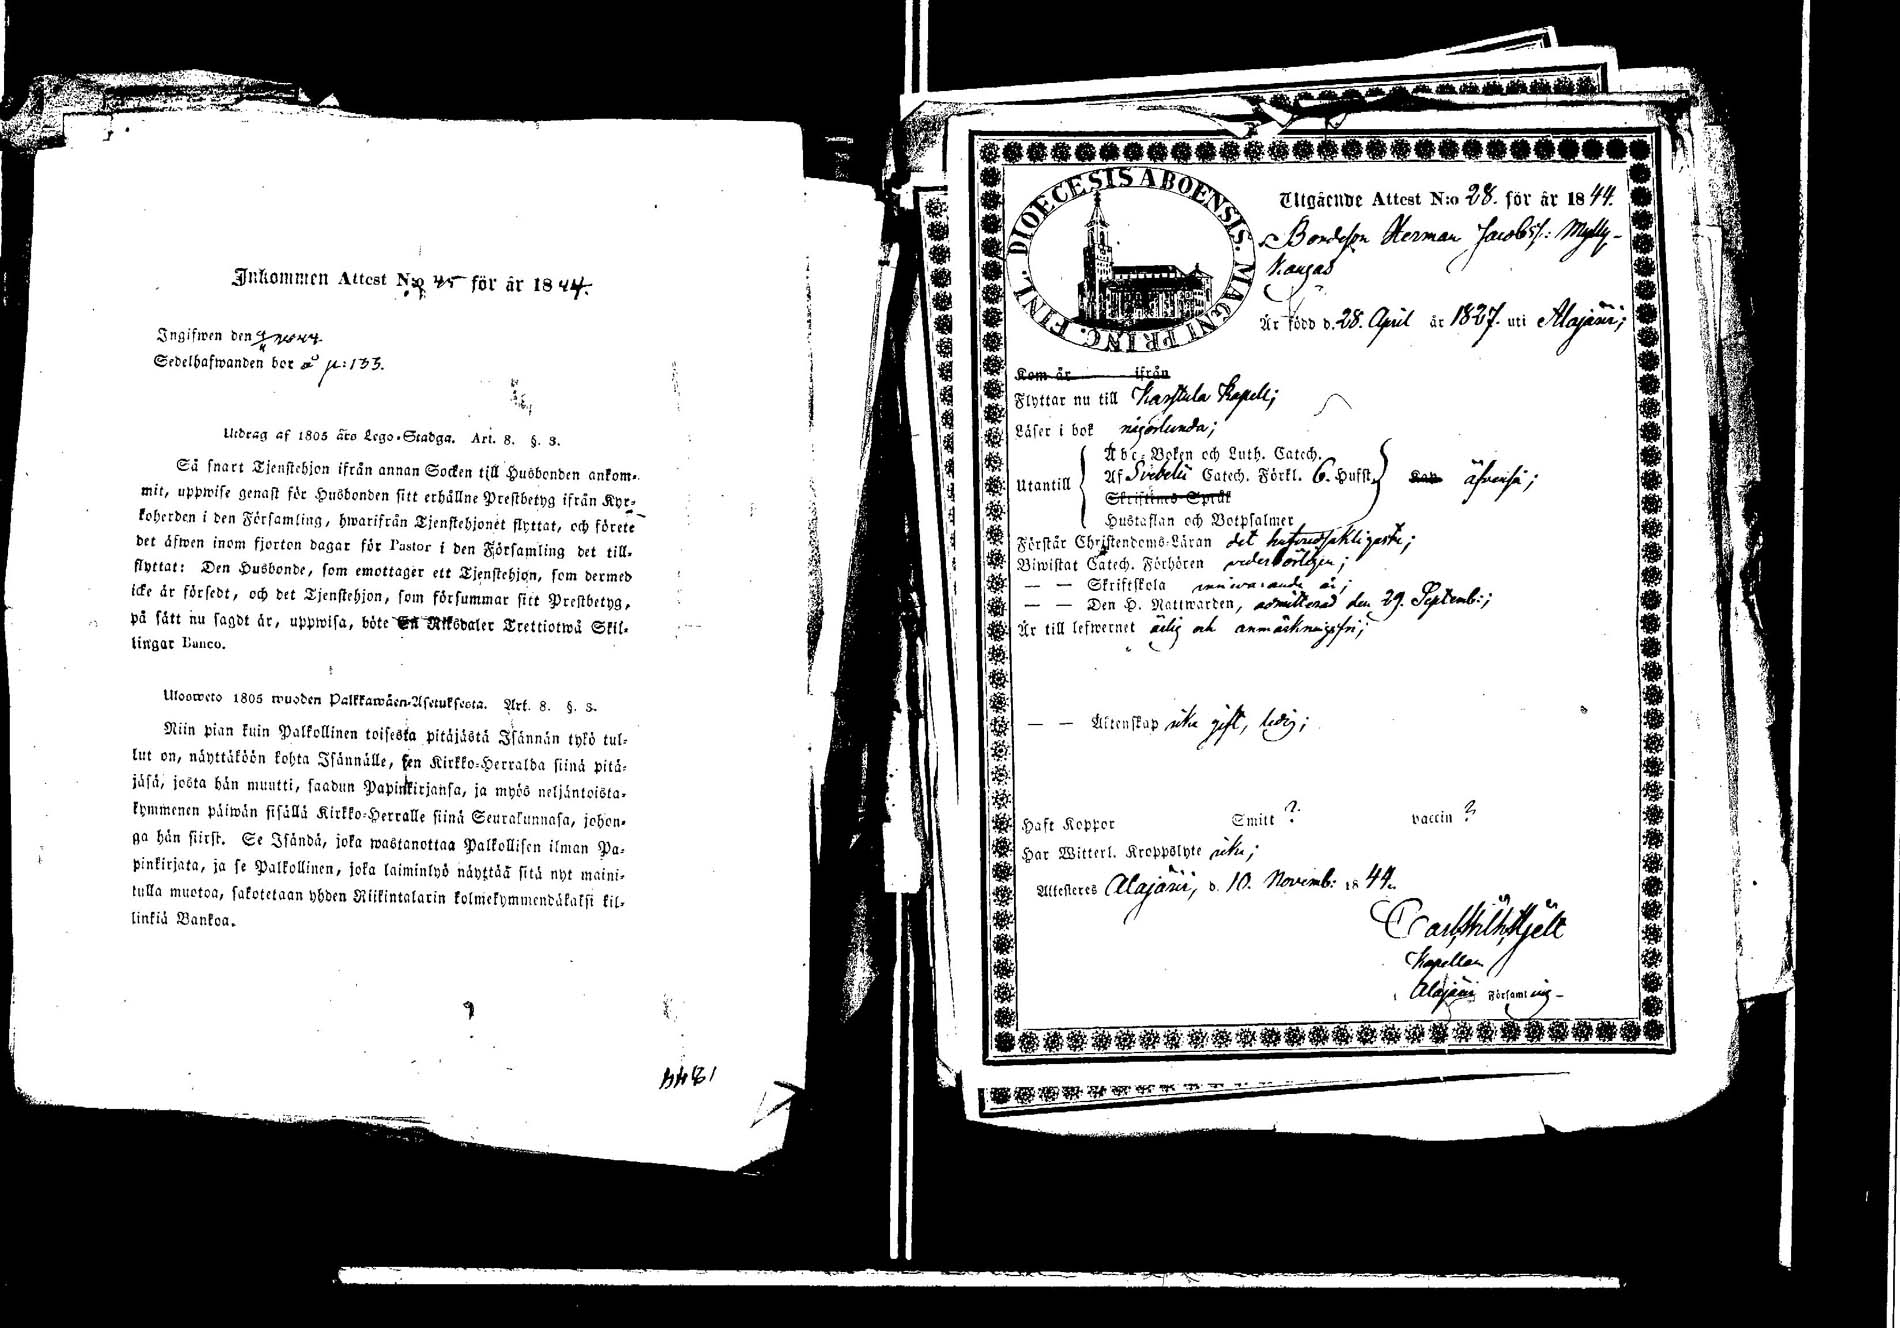 Inkommen Attest N:o 45 för år 1844.
Ingifwen den
Sedelhafwanden bor å p:133.
Utdrag af 1805 års Lego-Stadga. Art. 8. §. 3.
Så snart Tjenstehjon ifrån annan Socken till Husbonden ankom-
mit, uppwise genast för Husbonden sitt erhållne Prestbetyg ifrån Kyr-
koherden i den Församling, hwarifrån Tjenstehjonet flyttat, och förete
det äfwen inom fjorton dagar för Pastor i den Församling det till-
flyttat: Den Husbonde, som emottager ett Tjenstehjon, som dermed
icke är försedt, och det Tjenstehjon, som försummar sitt Prestbetyg,
på sätt nu sagdt är, uppwisa, böte En Riksdaler Trettiotwå Skil-
lingar Banco.
Ulosweto 1805 wuoden Palkkawäen-Asetuksesta. Art. 8. §. 3.
Niin pian kuin Palkollinen toisesta pitäjästä Isännän tykö tul-
lut on, näyttäköön kohta Isännälle, sen Kirkko-Herralda siinä pitä-
jäsä, josta hän muutti, saadun Papinkirjansa, ja myös neljäntoista-
kymmenen päiwän sisällä Kirkko-Herralle siinä Seurakunnasa, johon-
ga hän siirst. Se Isändä, joka wastanottaa Palkollisen ilman Pa-
pinkirjata, ja se Palkollinen, joka laiminlyö näyttää sitä nyt maini-
tulla muotoa, sakotetaan yhden Riikintalarin kolmekymmendäkaksi kil-
linkiä Bankoa.
1844
DIOECESIS ABOENSIS. MAGNI PRINC. FINL.
Utgående Attest N:o 28. för år 1844.
Bondeson Herman Jacobss: Mylly-
kangas
Är född d. 28. April år 1827. uti Alajärvi;
Kom år ifrån
Flyttar nu till Karstula Kapell;
Läser i bok någorlunda;
Utantill
Abc-Boken och Luth. Catech.
Af Svebelii Catech. Förkl. 6. Hufst.
Skriftenes Språk
Hustaflan och Botpsalmer
äfvenså;
Förstår Christendoms-Läran det hufvudsakligaste;
Biwistat Catech. Förhören vederbörligen;
— — Skriftskola innevarande år;
— — Den H. Nattwarden, admitterad den 29. Septemb:;
Är till lefwernet ärlig och anmärkningsfri;
— — Äktenskap icke gift, ledig;
Haft Koppor Smitt ? vaccin ?
Har Witterl. Kroppslyte icke;
Attesteres Alajärvi, d. 10. Novemb: 1844.
Carl Wilh. Hjelt
Kapellan
Alajärvi Församling